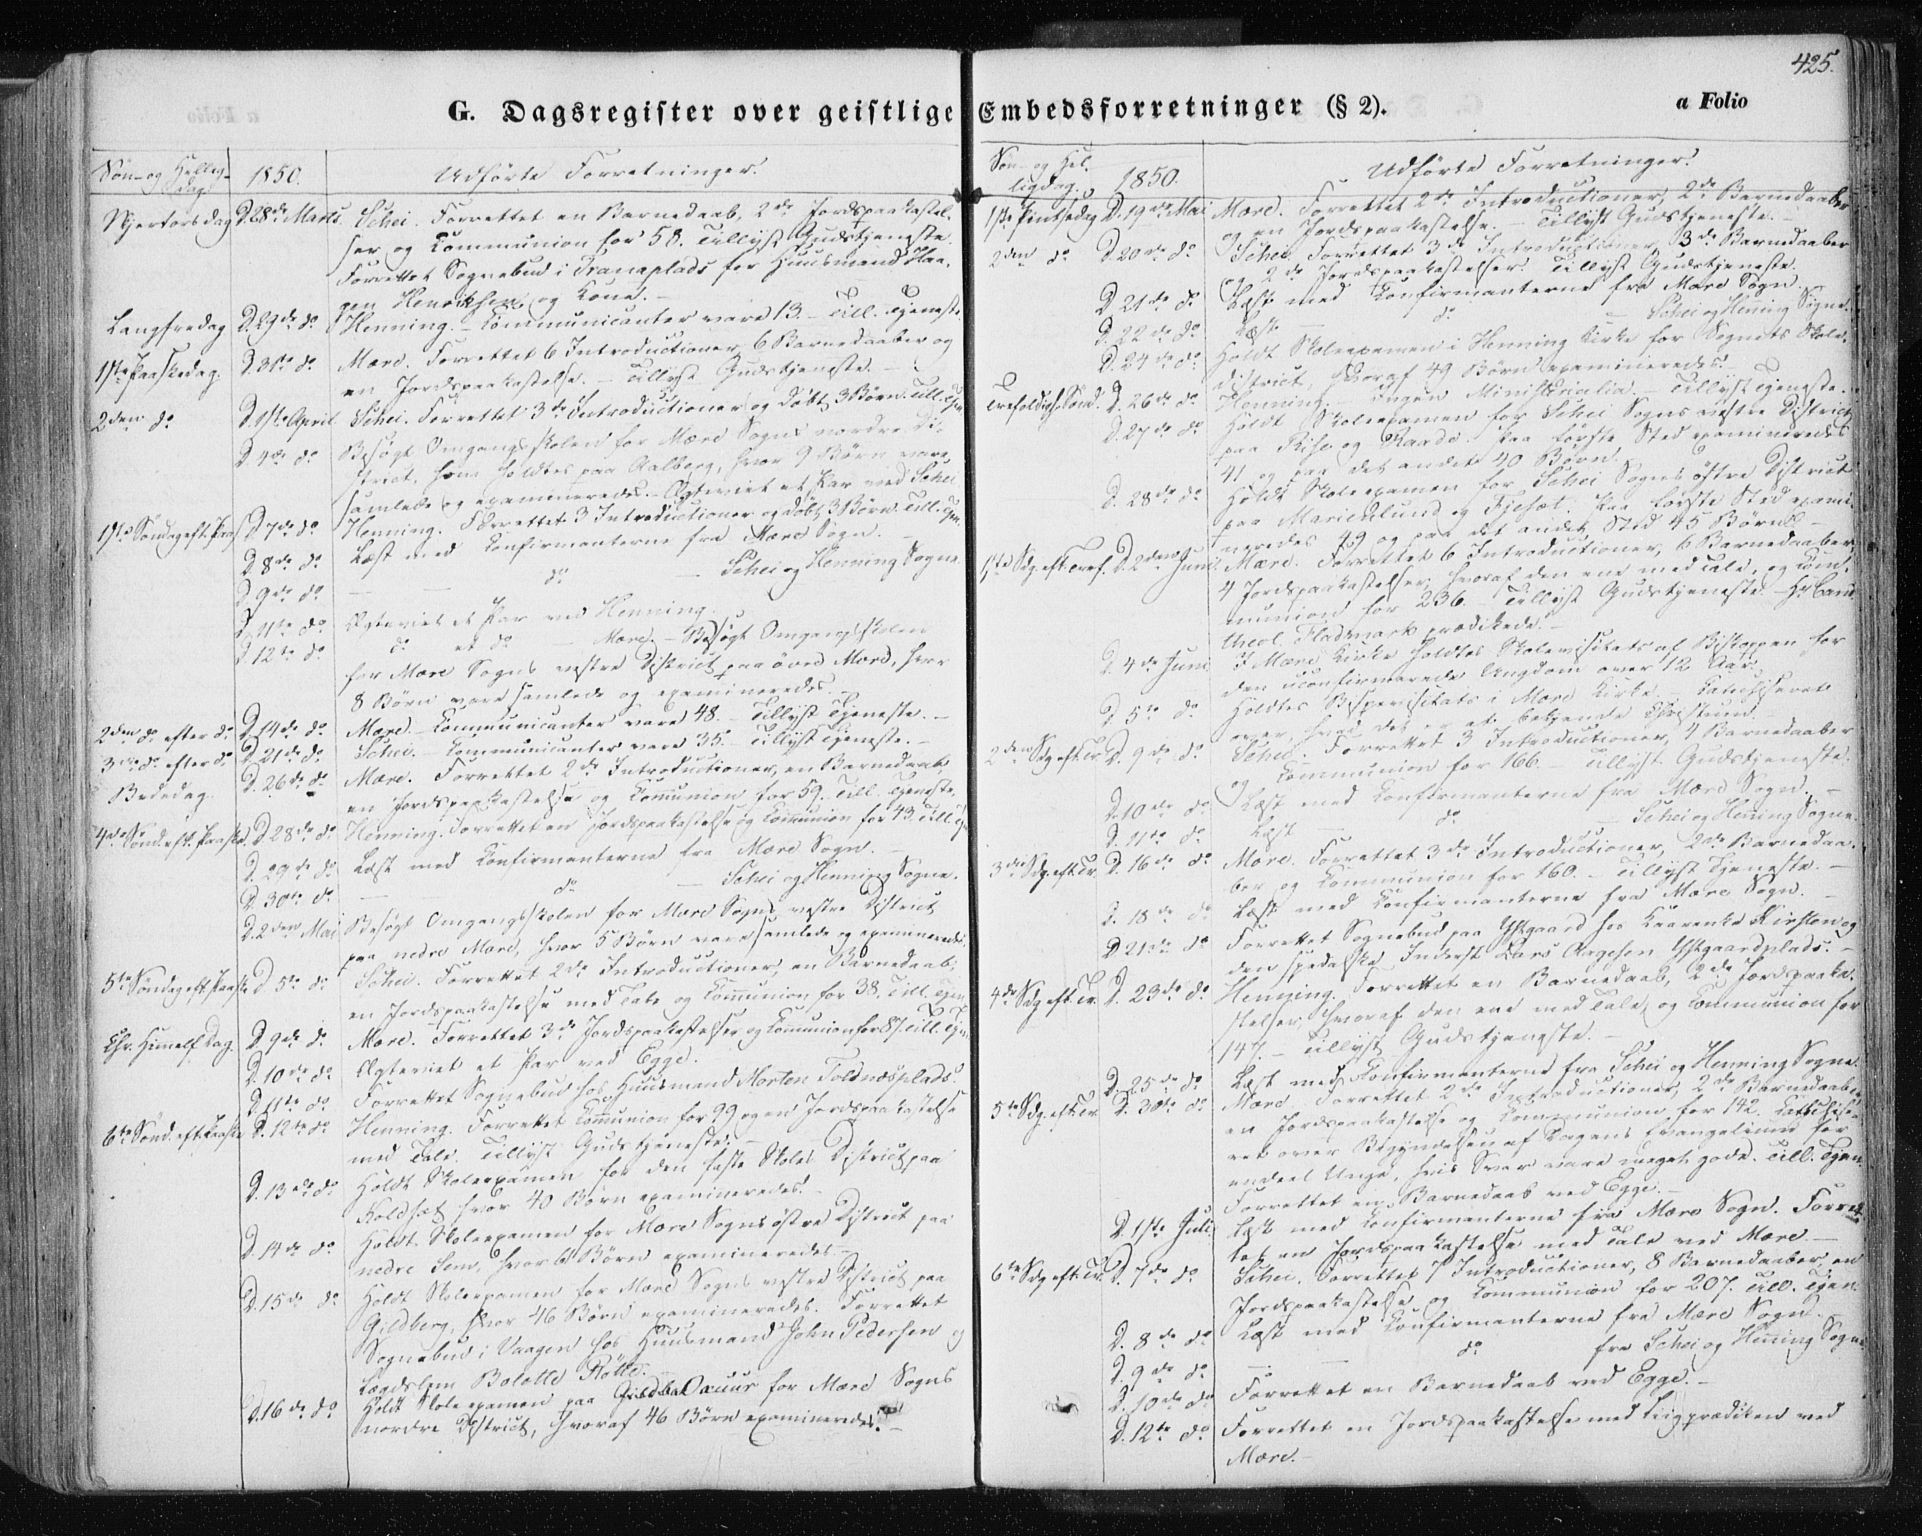 425.
G. Dagsregister over geistlige Embedsforretninger (§ 2).
a Folio
Søn- og Hellig-
dag.
1850.
Udførte Forretninger.
Skjertorsdag D. 28de Marts. Schei. Forrettet en Barnedaab, 2de Jordspaakastel-
ser og Communion for 58. Tillyst Gudstjeneste.
Forrettet Sognebud i Tranaplads for Huusmand Haa-
gen Henriksen og Kone.
Langfredag D. 29de do Henning. - Communicanter vare 13. - Till. Tjeneste.
1ste Paaskedag. D. 31te do Mære. Forrettet 6 Introductioner, 6 Barnedaaber og
en Jordspaakastelse. - Tillyst Gudstjeneste. -
2den do D. 1ste April Schei. Forrettet 3de Introductioner og døbt 3 Børn. Till. Tjen.
D. 4de do Besøgt Omgangsskolen for Mære Sogns nordre Di-
strict, som holdtes paa Aalberg, hvor 9 Børn vare
samlede og examineredes. - Ægteviet et Par ved Schei
1ste Søndag eft. Paas. D. 7de do Henning. Forrettet 3 Introductioner og døbt 3 Børn. Till. Tjen.
D. 8de do Læst med Confirmanterne fra Mære Sogn. -
D. 9de do - do - Schei og Henning Sogne.
D. 11te do Ægteviet et Par ved Henning.
D. 12te do do et do - Mære. - Besøgt Omgangsskolen
for Mære Sogns vestre District paa øvre Mære, hvor
8 Børn vare samlede og examineredes. -
2den do efter do D. 14de do Mære. - Communicanter vare 48. - Tillyst Tjeneste. -
3die do efter do D. 21de do Schei. - Communicanter vare 35. Tillyst Tjeneste. -
Bededag. D. 26de do Mære. Forrettet 2de Introductioner, en Barnedaab,
en Jordspaakastelse og Communion for 59. Till. Tjeneste.
4de Sønd. eft. Paaske. D. 28de do Henning. Forrettet en Jordspaakastelse og Communion for 43. Till. Tje.
D. 29de do Læst med Confirmanterne fra Mære Sogn. -
D. 30te do - do - Schei og Henning Sogne.
D. 2den Mai Besøgt Omgangsskolen for Mære Sogns vestre District
paa nedre Mære, hvor 5 Børn vare samlede og examineredes.
5te Søndag eft. Paaske D. 5te do Schei. Forrettet 2de Introductioner, en Barnedaab,
en Jordspaakastelse med Tale og Communion for 38. Till. Tjen.
Chr. Himelf. Dag. D. 9de do Mære. Forrettet 3de Jordspaakastelser og Communion for 87. Till. Tje.
D. 10de do Ægteviet et Par ved Egge.
D. 11te do Forrettet Sognebud hos Huusmand Morten Toldnæsplads.
6te Sønd. eft. Paaske D. 12te do Henning. Forrettet Communion for 99 og en Jordspaakastelse
med Tale. Tillyst Gudstjeneste. -
D. 13de do Holdt Skoleexamen for den faste Skoles District paa
Koldsæt hvor 40 Børn examineredes.
D. 14de do Holdt Skoleexamen for Mære Sogns østre District paa
nedre Lem, hvor 61 Børn examineredes. -
D. 15de do Holdt Skoleexamen for Mære Sogns vestre District paa
Gildberg, hvor 46 Børn examineredes. Forrettet
Sognebud i Vaagen hos Huusmand John Pedersen og
Lægdslem Bolette Røtte. -
D. 16de do Holdt Skoleexamen paa Dauur for Mære Sogns
nordre District, hvoraf 46 Børn examineredes. -
Søn- og Hel-
ligdag.
1850.
Udførte Forretninger.
1ste Pintsedag D. 19de Mai Mære. Forrettet 2de Introductioner, 2de Barnedaaber
og en Jordspaakastelse. - Tillyst Gudstjeneste. -
2den do D. 20de do Schei. Forrettet 3de Introductioner, 3de Barnedaaber
og 2de Jordspaakastelser. Tillyst Gudstjeneste.
D. 21de do Læst med Confirmanterne fra Mære Sogn.
D. 22de do Læst - do - Schei og Hening Sogne.
D. 24de do Holdt Skoleexamen i Henning Kirke for Sognets Skole-
district, hvoraf 49 Børn examineredes.
Trefoldigh. Sønd. D. 26de do Henning. ingen Ministerialia. - Tillyst Tjeneste.
D. 27de do Holdt Skoleexamen for Schei Sogns vestre District
paa Rise og Kaade. Paa første Sted examineredes
41 og paa det andet 40 Børn.
D. 28de do Holdt Skoleexamen for Schei Sogns østre District
paa Marienlund og Fjesæt. Paa første Sted exami-
neredes 49 og paa det andet Sted 45 Børn. -
1ste Sdg. eft. Tref. D. 2den Juni Mære. Forrettet 6 Introductioner, 6 Barnedaaber,
4 Jordspaakastelser, hvoraf den ene med Tale, og Com-
munion for 236. - Tillyst Gudstjeneste. - Hr Cand.
theol. Fladmark prædikede. -
D. 4de Juni I Mære Kirke holdtes Skolevisitats af Biskoppen for
den uconfirmerede Ungdom over 12 Aar.
D. 5te do Holdtes Bispevisitats i Mære Kirke. - Catechiseret
over, hvad det er at bekjende Christum. -
2den Sdg. eft. Tr. D. 9de do Schei. Forrettet 3 Introductioner, 4 Barnedaaber
og Communion for 166. - Tillyst Gudstjeneste.
D. 10de do Læst med Confirmanterne fra Mære Sogn. -
D. 11te do Læst - do - Schei og Hening Sogne.
3die Sdg. eft. Tr. D. 16de do Mære. Forrettet 3de Introductioner, 2de Barnedaa-
ber og Communion for 160. - Tillyst Tjeneste. -
D. 18de do Læst med Confirmanterne fra Mære Sogn. -
D. 21de do Forrettet Sognebud paa Ystgaard hos Kaarenke Kirsten og
den spedalske Inderst Lars Aagesen Ystgaardplads. -
4de Sdg. eft. Tr. D. 23de do Henning. Forrettet en Barnedaab, 2de Jordspaaka-
stelser, hvoraf den ene med Tale, og Communion for
147. - Tillyst Gudstjeneste. -
D. 25de do Læst med Confirmanterne fra Schei og Henning Sogne.
5te Sdg. eft. Tr. D. 30te do Mære. Forrettet 2de Introductioner, 2de Barnedaaber,
en Jordspaakastelse og Communion for 142. Catechise-
ret over Begyndelsen af Dagens Evangelium for
endeel Unge, hvis Svar vare meget gode. Till. Tjen.
Forrettet en Barnedaab ved Egge. -
D. 1ste Juli Læst med Confirmanterne fra Mære Sogn. Forret-
tet en Jordspaakastelse med Tale ved Mære. -
6te Sdg. eft. Tr. D. 7de do Schei. Forrettet 7 Introductioner, 8 Barnedaaber, en
Jordspaakastelse og Communion for 207. Till. Tjen.
D. 8de do Læst med Confirmanterne fra Mære Sogn. -
D. 9de do - do fra Schei og Hening Sogne
D. 10de do Forrettet en Barnedaab ved Egge. -
D. 12te do Forrettet en Jordspaakastelse med Liigprædiken ved
Mære. -